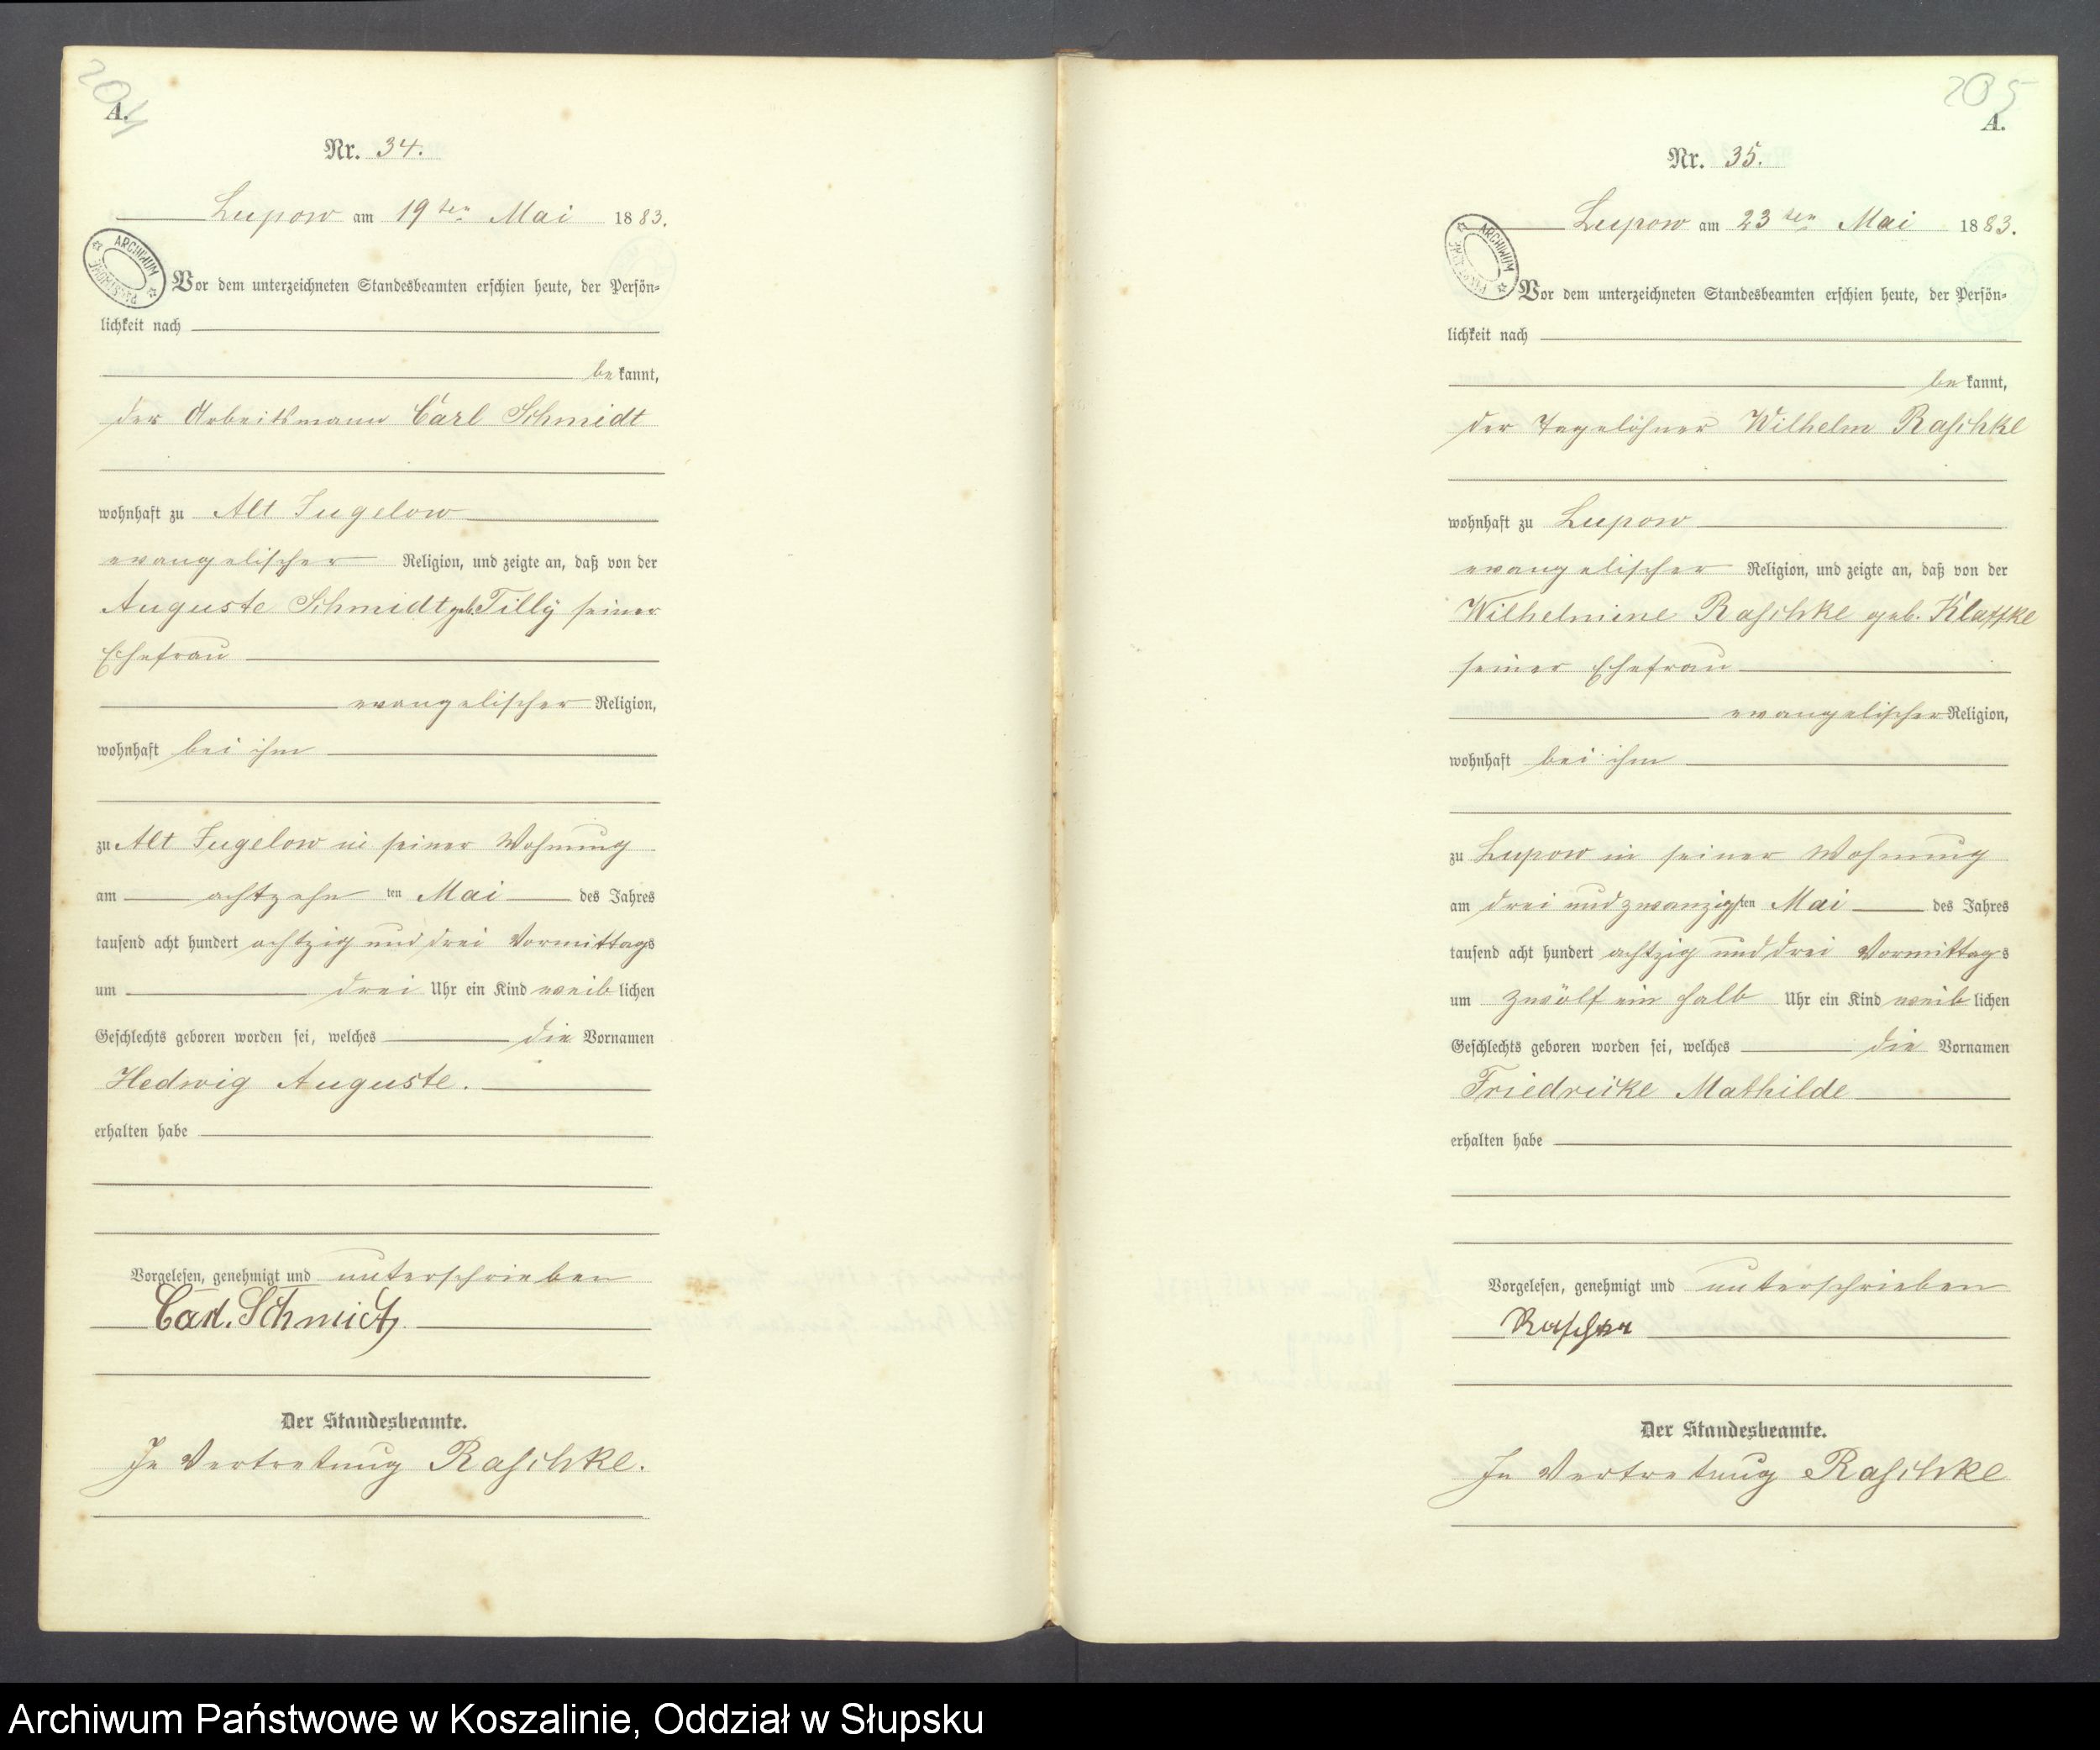 204
A.
Nr. 34.
Lupow am 19ten Mai 1883.
ARCHIWUM PAŃSTWOWE
Vor dem unterzeichneten Standesbeamten erschien heute, der Persön-
lichkeit nach
be kannt,
der Arbeitsmann Carl Schmidt
wohnhaft zu Alt Jugelow
evangelischer Religion, und zeigte an, daß von der
Auguste Schmidt geb. Tilly seiner
Ehefrau
evangelischer Religion,
wohnhaft bei ihm
zu Alt Jugelow in seiner Wohnung
am achtzehn ten Mai des Jahres
tausend acht hundert achtzig und drei Vormittags
um drei Uhr ein Kind weib lichen
Geschlechts geboren worden sei, welches die Vornamen
Hedwig Auguste.
erhalten habe
Vorgelesen, genehmigt und unterschrieben
Carl. Schmidt
Der Standesbeamte.
In Vertretung Raschke.
205
A.
Nr. 35.
Lupow am 23ten Mai 1883.
ARCHIWUM PAŃSTWOWE
Vor dem unterzeichneten Standesbeamten erschien heute, der Persön-
lichkeit nach
be kannt,
der Tagelöhner Wilhelm Raschke
wohnhaft zu Lupow
evangelischer Religion, und zeigte an, daß von der
Wilhelmine Raschke geb.
seiner Ehefrau
evangelischer Religion,
wohnhaft bei ihm
zu Lupow in seiner Wohnung
am drei und zwanzig ten Mai des Jahres
tausend acht hundert achtzig und drei Vormittags
um zwölf ein halb Uhr ein Kind weib lichen
Geschlechts geboren worden sei, welches die Vornamen
Friedreike Mathilde
erhalten habe
Vorgelesen, genehmigt und unterschrieben
Der Standesbeamte.
In Vertretung Raschke
Archiwum Państwowe w Koszalinie, Oddział w Słupsku